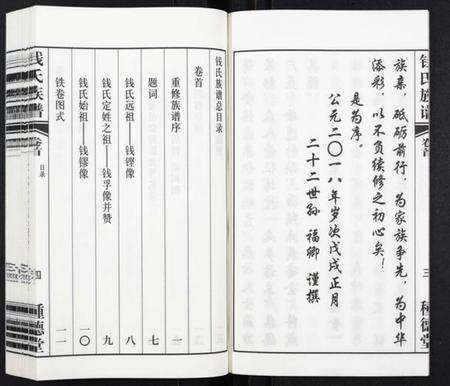 钱氏族谱 卷首 三 種德堂
族亲，砥砺前行，为家族争先，为中华
添彩，以不负续修之初心矣！
是为序。
公元二〇一八年岁次戊戌正月
二十二世孙 福卿 谨撰
钱氏族谱总目录
卷首
重修族谱序 一
题词 七
钱氏远祖——钱铿像 八
钱氏定姓之祖——钱孚像并赞 九
钱氏始祖——钱镠像 一〇
铁卷图式 一一
钱氏族谱 卷首 目录 四 種德堂